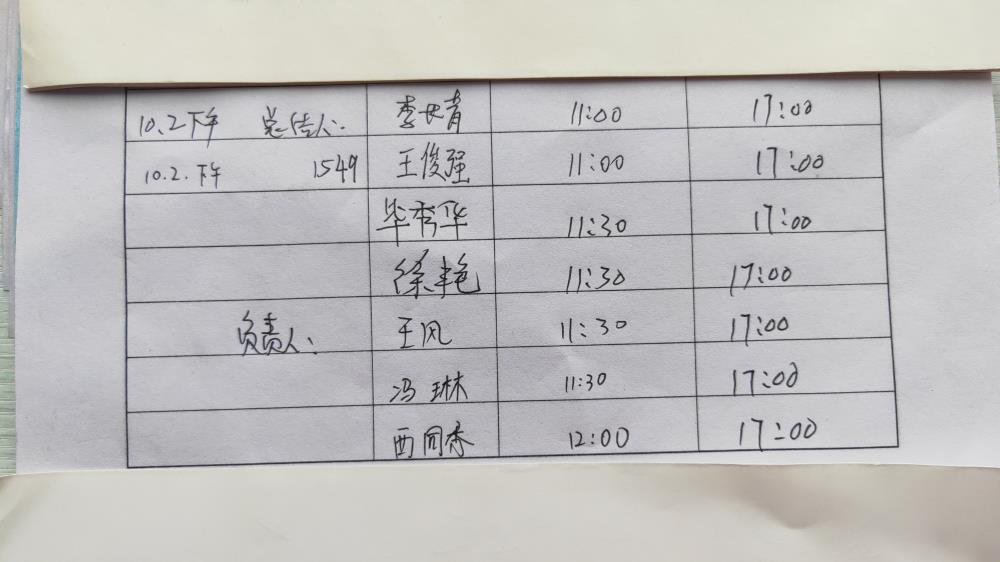 10.2下午 总信人: 李长青 11:00 17:00
10.2.下午 1549 王俊强 11:00 17:00
毕秀华 11:30 17:00
徐丰艳 11:30 17:00
负责人: 王风 11:30 17:00
冯琳 11:30 17:00
西同 12:00 17:00